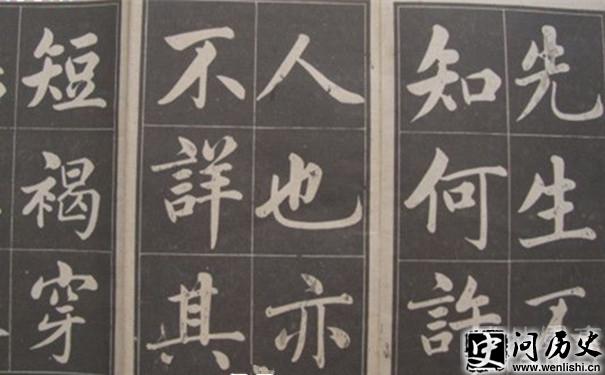 先生不
知何許
人也亦
不詳其
短褐穿
问历史
www.wenlishi.cn